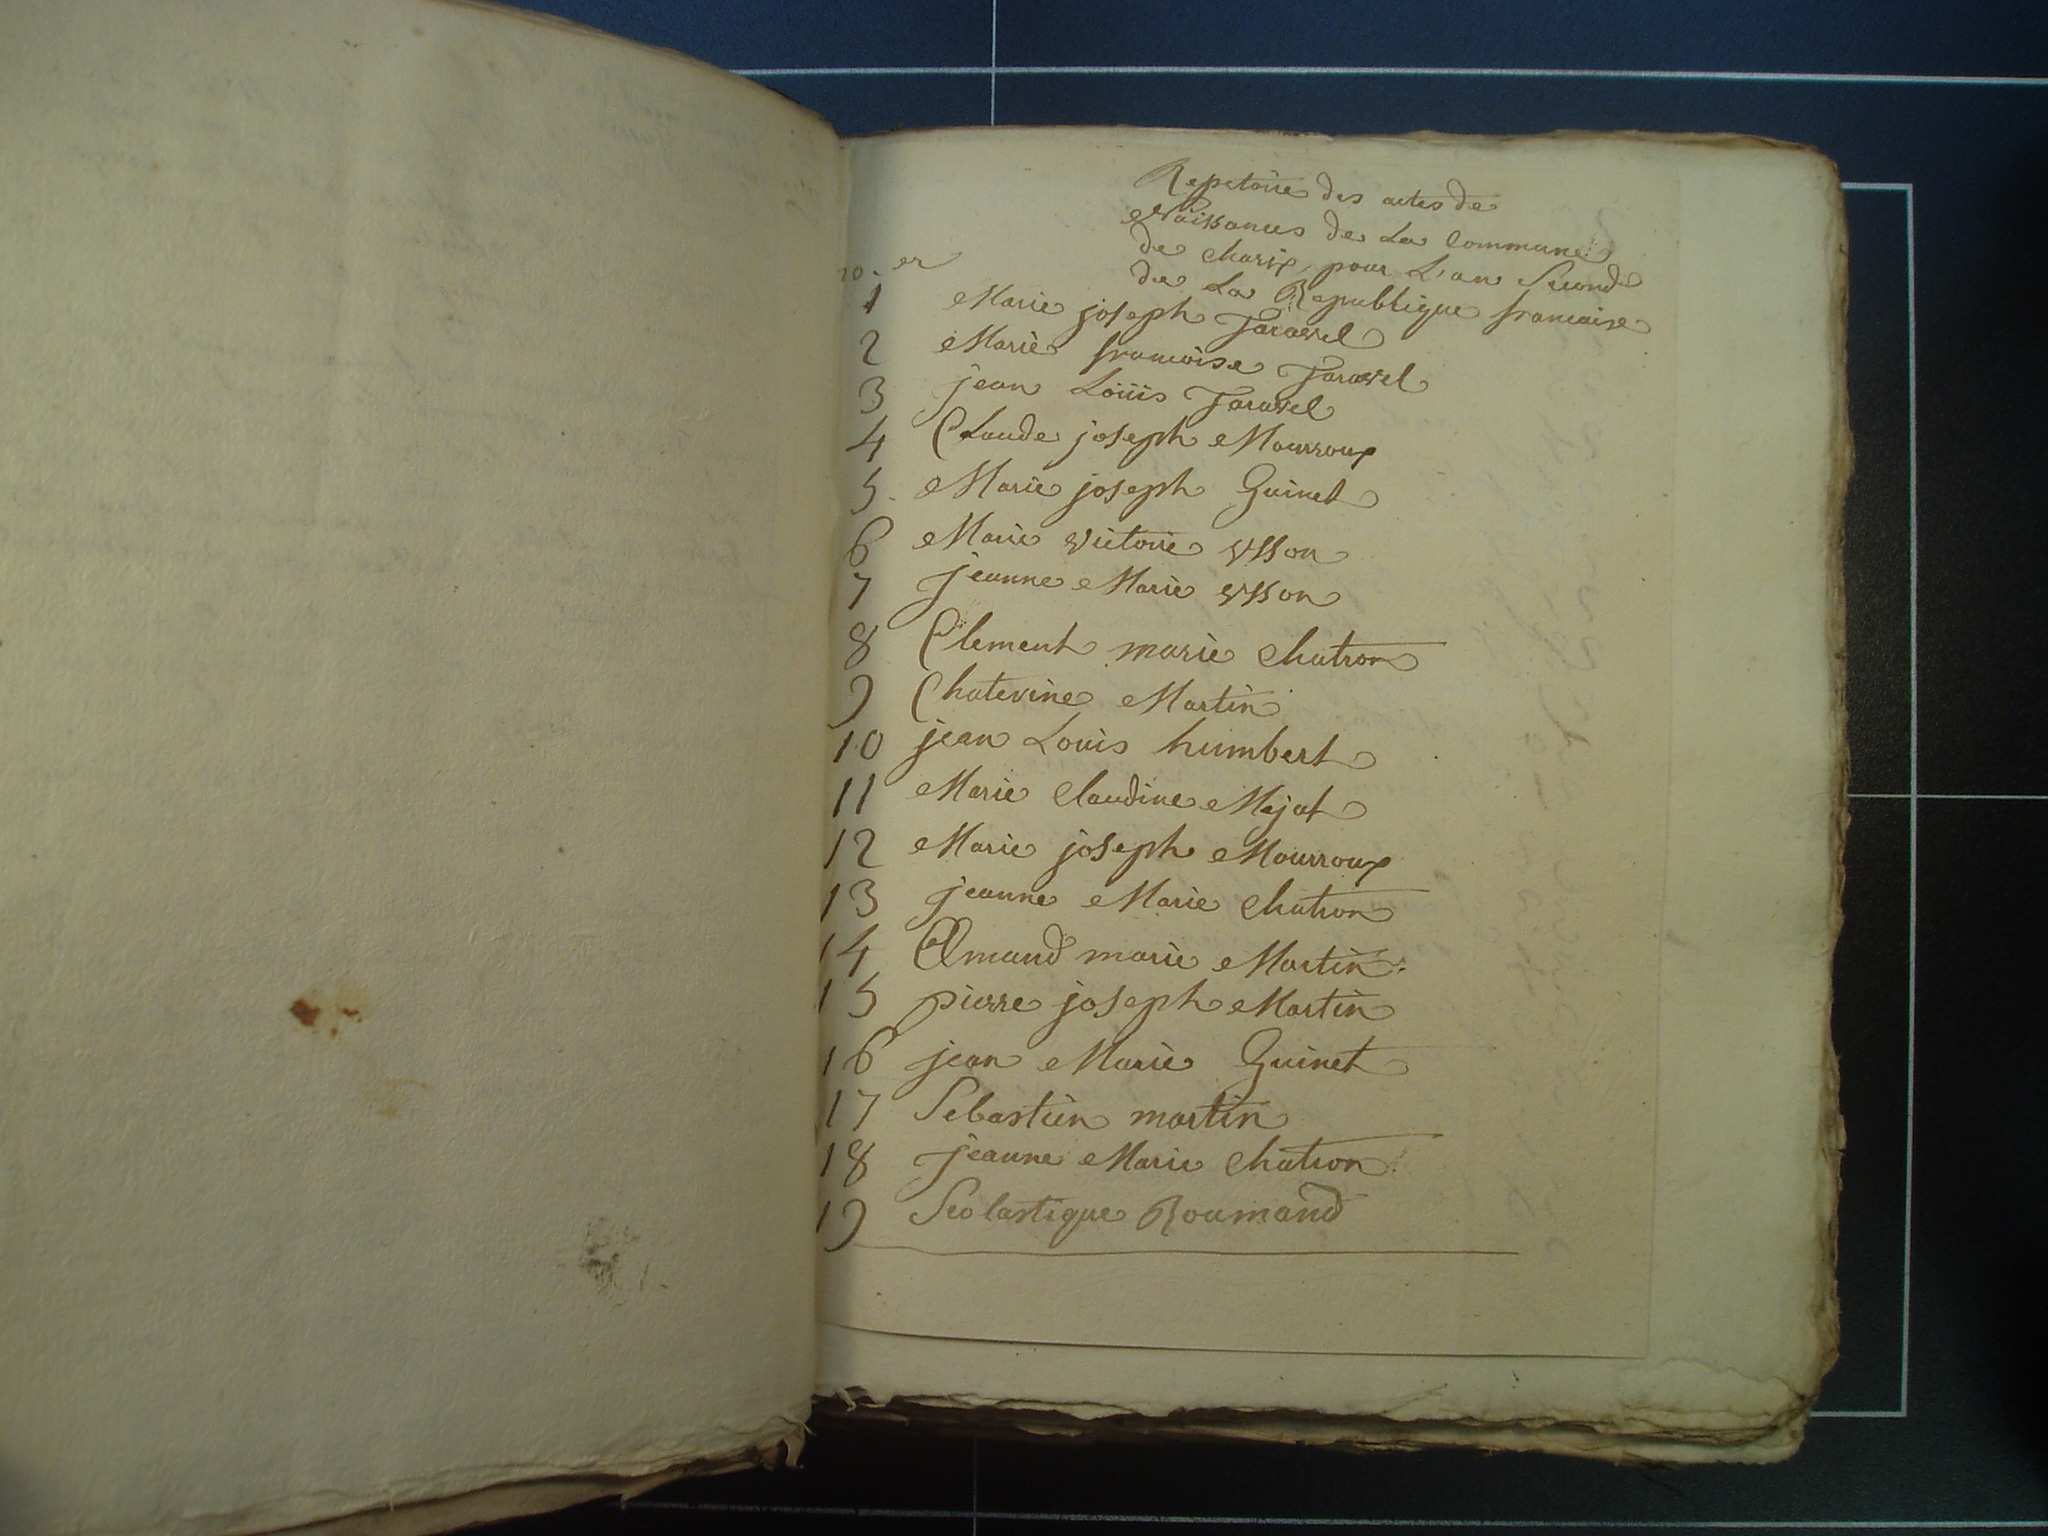 Repetoire des actes de
Naissances de La Commune
de Charix, pour L'an Second
de La Republique francaise
no. er
1 Marie joseph Taravel
2 Marie francoise Taravel
3 jean Loüis Taravel
4 Claude joseph Mourroux
5. Marie joseph Guinet
6 Marie victorie ysson
7 Jeanne Marie ysson
8 Clement marie Chatron
9 Chaterine Martin
10 jean Louis humbert
11 Marie Claudine Mejat
12 Marie joseph Mourroux
13 jeanne Marie Chatron
14 Amand marie Martin
15 pierre joseph Martin
16 jean Marie Guinet
17 Sebastien martin
18 Jeanne Marie Chatron
19 Scolastique Roumand